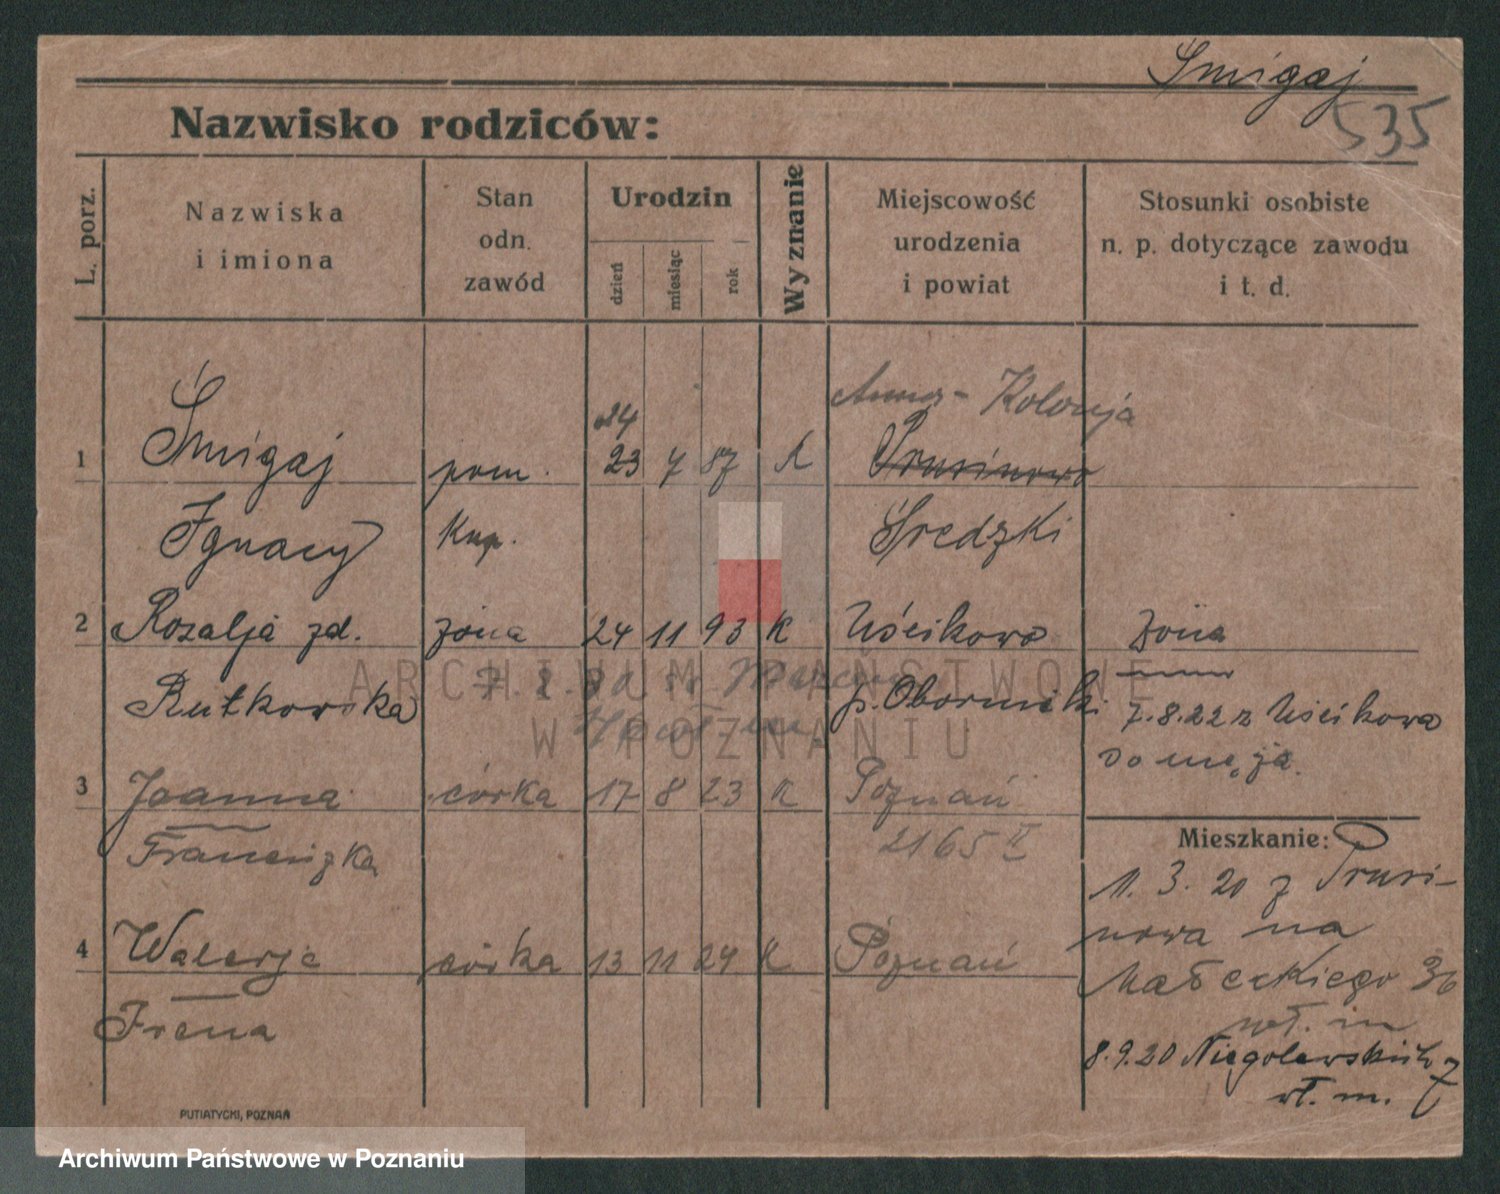 Śmigaj
535
Nazwisko rodziców:
L. porz.
Nazwiska
i imiona
Stan
odn.
zawód
Urodzin
dzień
miesiąc
rok
Wyznanie
Miejscowość
urodzenia
i powiat
Stosunki osobiste
n. p. dotyczące zawodu
i t. d.
Kolonja
24
1 Śmigaj pom. 23 7 87 Prusinowo
Ignacy kup. Średzki
2 Rozalja zd. żona 24 11 93 K Uścikowo żona
Rutkowska p. Obornicki 7.8.22 z Uścikowa
do męża.
3 Joanna córka 17 8 23 K Poznań
Franciszka 2165 II
Mieszkanie:
11. 3. 20 z Prusi-
nowa na
Małeckiego 36
wł. m
4 Walerja córka 13 11 24 K Poznań
Irena
8.9.20 Niegolewskich 7
wł. m.
PUTIATYCKI, POZNAŃ
ARCHIWUM PAŃSTWOWE
W POZNANIU
Archiwum Państwowe w Poznaniu